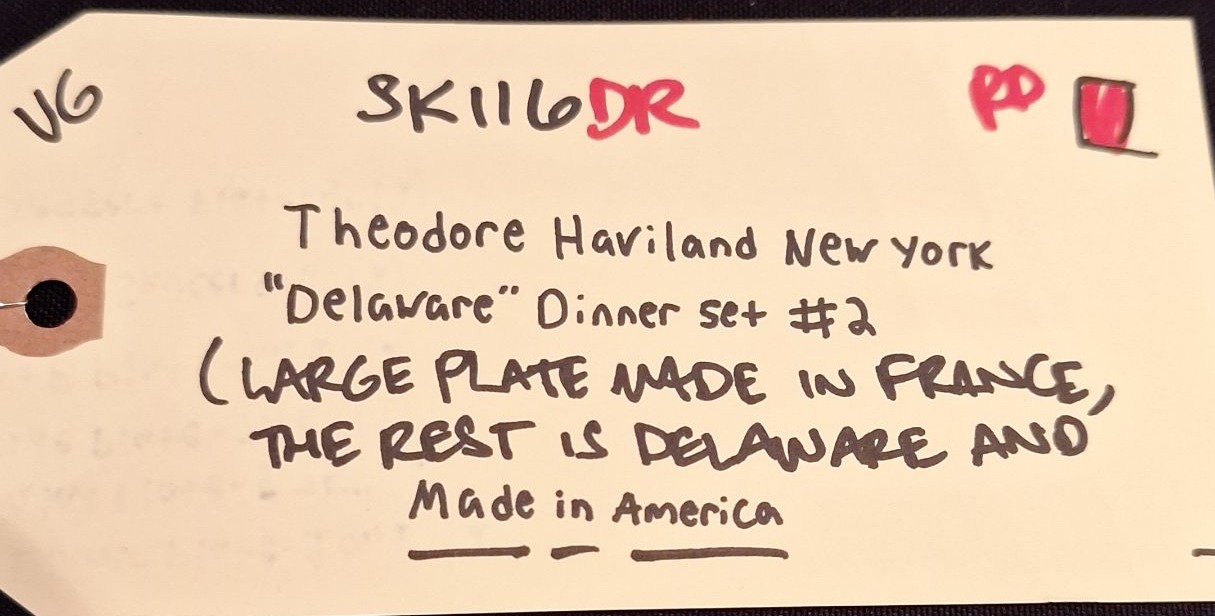 VG
SK116DR
RD
Theodore Haviland New York
"Delaware" Dinner set #2
(LARGE PLATE MADE IN FRANCE,
THE REST IS DELAWARE AND
Made in America